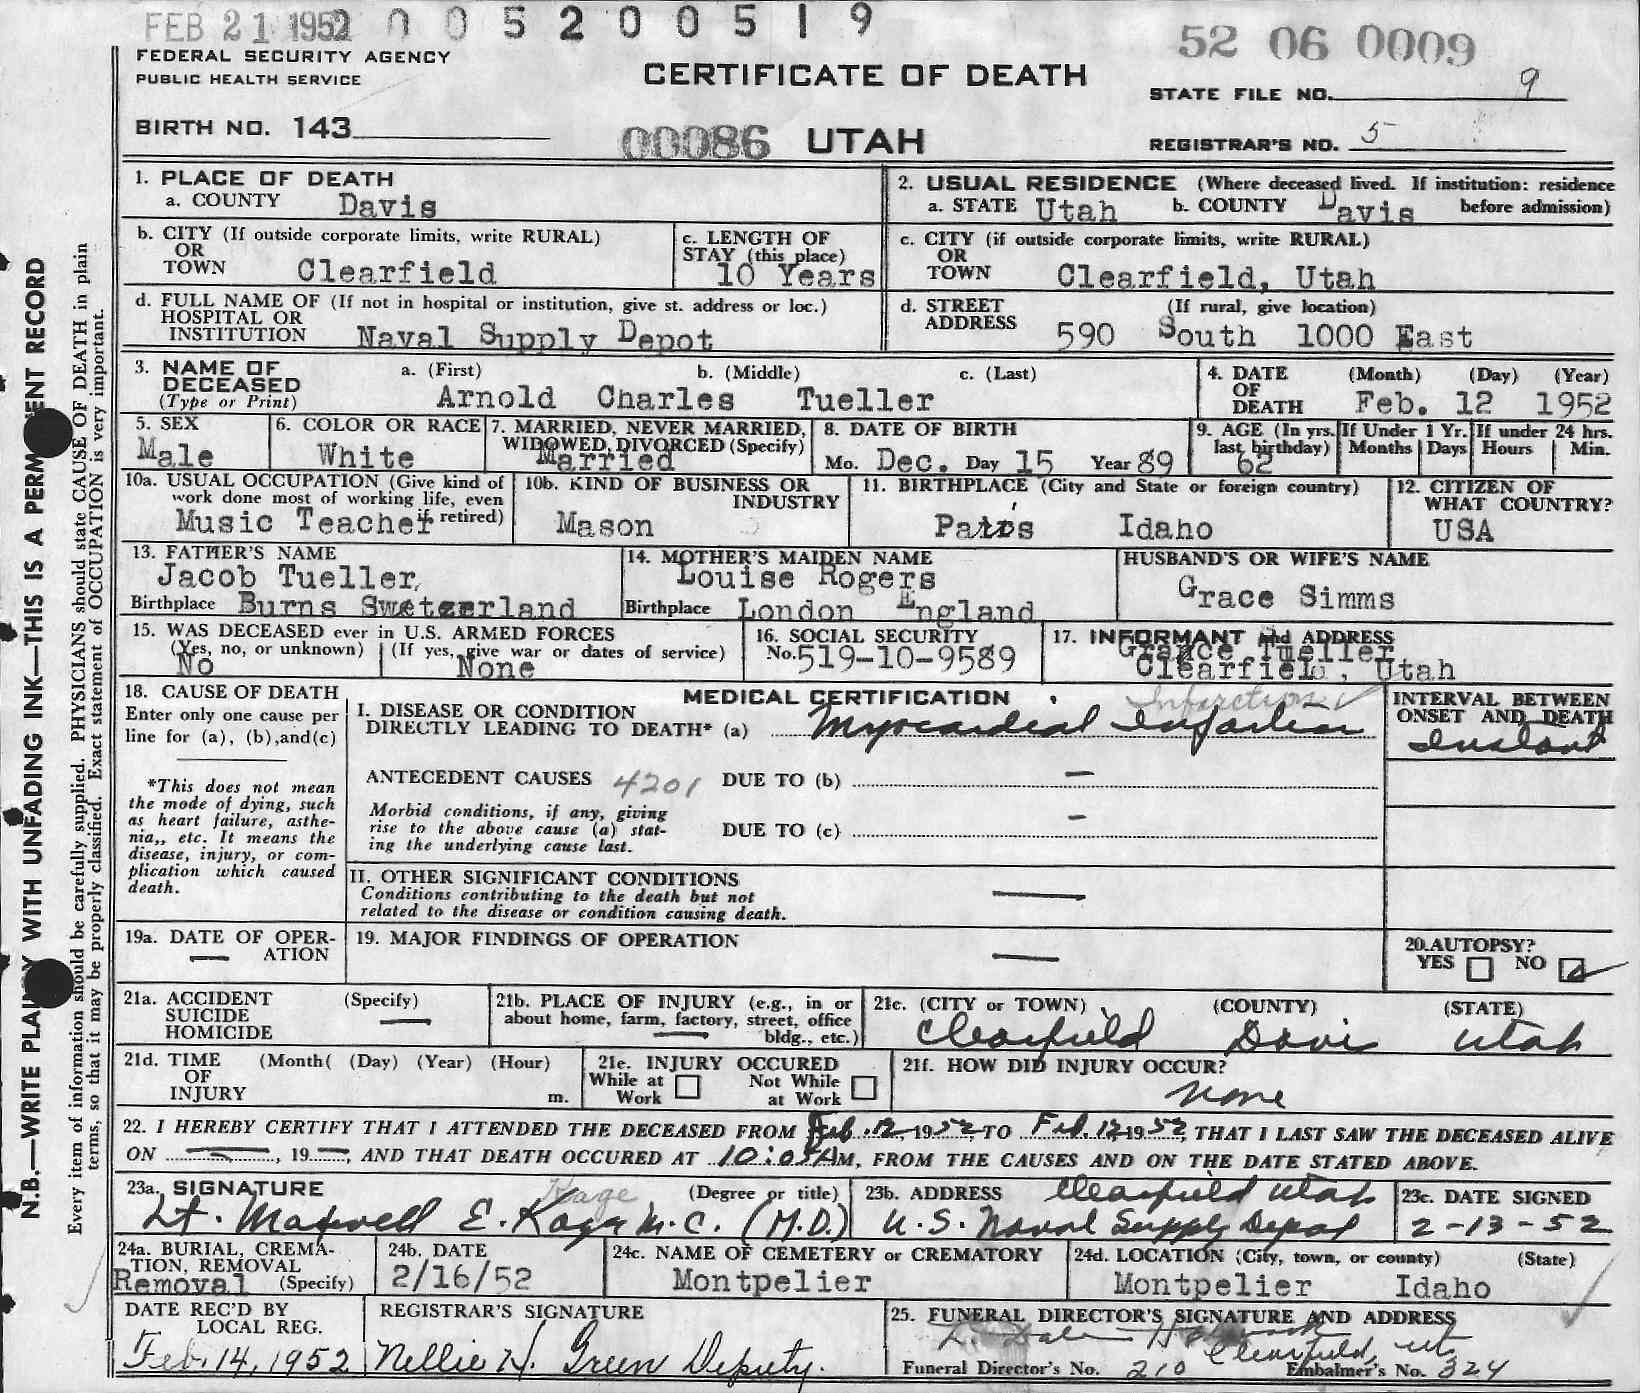 FEB 21 1952 0 0 5 2 0 0 5 1 9
52 06 0009
FEDERAL SECURITY AGENCY
PUBLIC HEALTH SERVICE
CERTIFICATE OF DEATH
STATE FILE NO. 9
BIRTH NO. 143
00086 UTAH
REGISTRAR'S NO. 5
N.B.—WRITE PLAINLY WITH UNFADING INK—THIS IS A PERMANENT RECORD
Every item of information should be carefully supplied. PHYSICIANS should state CAUSE OF DEATH in plain
terms, so that it may be properly classified. Exact statement of OCCUPATION is very important.
1. PLACE OF DEATH
a. COUNTY Davis
2. USUAL RESIDENCE (Where deceased lived. If institution: residence
a. STATE Utah b. COUNTY Davis before admission)
b. CITY (If outside corporate limits, write RURAL)
OR
TOWN Clearfield
c. LENGTH OF
STAY (this place)
10 Years
c. CITY (if outside corporate limits, write RURAL)
OR
TOWN Clearfield, Utah
d. FULL NAME OF (If not in hospital or institution, give st. address or loc.)
HOSPITAL OR
INSTITUTION Naval Supply Depot
d. STREET (If rural, give location)
ADDRESS 590 South 1000 East
3. NAME OF a. (First) b. (Middle) c. (Last)
DECEASED
(Type or Print) Arnold Charles Tueller
4. DATE (Month) (Day) (Year)
OF
DEATH Feb. 12 1952
5. SEX
Male
6. COLOR OR RACE
White
7. MARRIED, NEVER MARRIED,
WIDOWED, DIVORCED (Specify)
Married
8. DATE OF BIRTH
Mo. Dec. Day 15 Year 89
9. AGE (In yrs.
last birthday)
62
If Under 1 Yr.
Months Days
If under 24 hrs.
Hours Min.
10a. USUAL OCCUPATION (Give kind of
work done most of working life, even
Music Teacher if retired)
10b. KIND OF BUSINESS OR
INDUSTRY
Mason
11. BIRTHPLACE (City and State or foreign country)
Paris Idaho
12. CITIZEN OF
WHAT COUNTRY?
USA
13. FATHER'S NAME
Jacob Tueller
Birthplace Burns Swetzerland
14. MOTHER'S MAIDEN NAME
Louise Rogers
Birthplace London England
HUSBAND'S OR WIFE'S NAME
Grace Simms
15. WAS DECEASED ever in U.S. ARMED FORCES
(Yes, no, or unknown) (If yes, give war or dates of service)
No None
16. SOCIAL SECURITY
No. 519-10-9589
17. INFORMANT and ADDRESS
Grance Tueller
Clearfield, Utah
18. CAUSE OF DEATH
Enter only one cause per
line for (a), (b),and(c)
*This does not mean
the mode of dying, such
as heart failure, asthe-
nia,, etc. It means the
disease, injury, or com-
plication which caused
death.
MEDICAL CERTIFICATION
Infarction
I. DISEASE OR CONDITION
DIRECTLY LEADING TO DEATH* (a) Myocardial Infartion
INTERVAL BETWEEN
ONSET AND DEATH
Instant
ANTECEDENT CAUSES 4201 DUE TO (b) –
Morbid conditions, if any, giving
rise to the above cause (a) stat-
ing the underlying cause last.
DUE TO (c) –
II. OTHER SIGNIFICANT CONDITIONS
Conditions contributing to the death but not
related to the disease or condition causing death.
—
19a. DATE OF OPER-
— ATION
19. MAJOR FINDINGS OF OPERATION
—
20. AUTOPSY?
YES NO
21a. ACCIDENT (Specify)
SUICIDE —
HOMICIDE
21b. PLACE OF INJURY (e.g., in or
about home, farm, factory, street, office
— bldg., etc.)
21c. (CITY or TOWN) (COUNTY) (STATE)
Clearfield Davis Utah
21d. TIME (Month( (Day) (Year) (Hour)
OF
INJURY m.
21e. INJURY OCCURED
While at Not While
Work at Work
21f. HOW DID INJURY OCCUR?
None
22. I HEREBY CERTIFY THAT I ATTENDED THE DECEASED FROM Feb. 12, 1952, TO Feb. 12, 1952, THAT I LAST SAW THE DECEASED ALIVE
ON —, 19—, AND THAT DEATH OCCURED AT 10:05AM, FROM THE CAUSES AND ON THE DATE STATED ABOVE.
23a. SIGNATURE Kage (Degree or title)
Lt. Maxwell E. Kage M.C. (M.D.)
23b. ADDRESS Clearfield Utah
U.S. Naval Supply Depot
23c. DATE SIGNED
2-13-52
24a. BURIAL, CREMA-
TION, REMOVAL
Removal (Specify)
24b. DATE
2/16/52
24c. NAME OF CEMETERY or CREMATORY
Montpelier
24d. LOCATION (City, town, or county) (State)
Montpelier Idaho
DATE REC'D BY
LOCAL REG.
Feb. 14, 1952
REGISTRAR'S SIGNATURE
Nellie H. Green Deputy.
25. FUNERAL DIRECTOR'S SIGNATURE AND ADDRESS
Clearfield, Ut.
Funeral Director's No. 210 Embalmer's No. 324